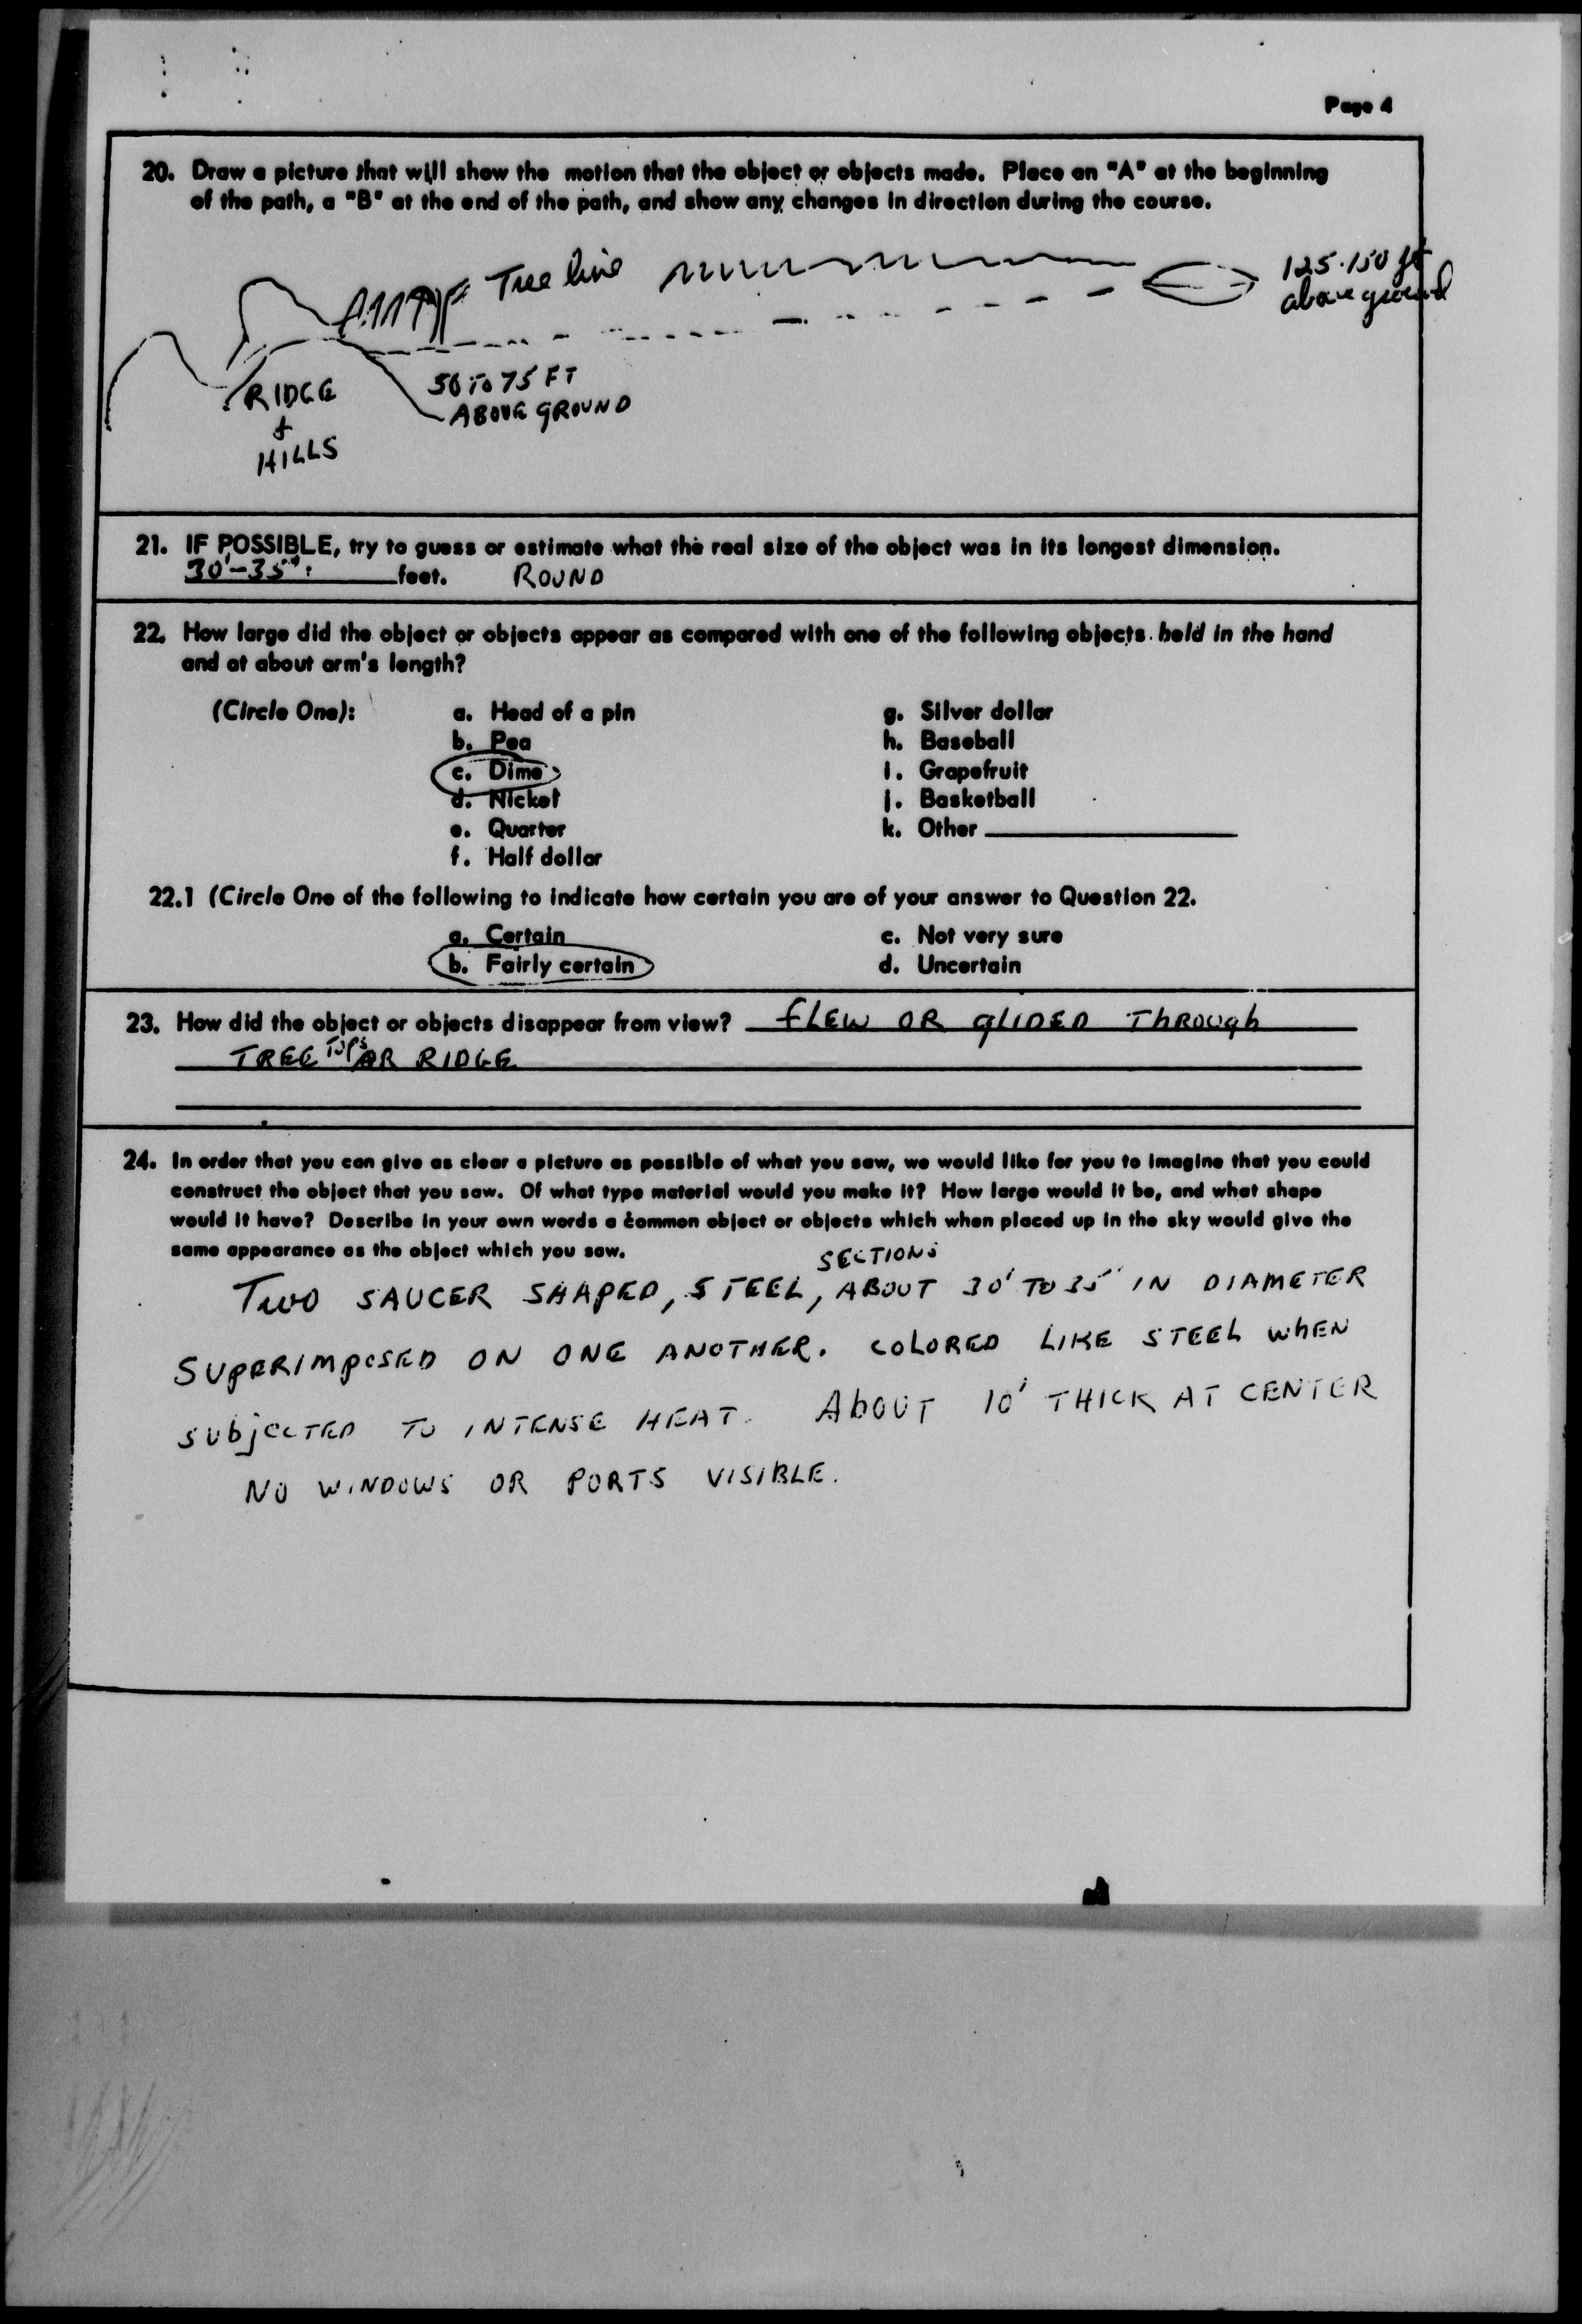 Page 4
20. Draw a picture that will show the motion that the object or objects made. Place an "A" at the beginning
of the path, a "B" at the end of the path, and show any changes in direction during the course.
Tree line
125-150 ft
above ground
RIDGE
&
HILLS
50 TO 75 FT
ABOVE GROUND
21. IF POSSIBLE, try to guess or estimate what the real size of the object was in its longest dimension.
30'-35' feet. ROUND
22. How large did the object or objects appear as compared with one of the following objects held in the hand
and at about arm's length?
(Circle One): a. Head of a pin g. Silver dollar
b. Pea h. Baseball
c. Dime i. Grapefruit
d. Nickel j. Basketball
e. Quarter k. Other
f. Half dollar
22.1 (Circle One of the following to indicate how certain you are of your answer to Question 22.
a. Certain c. Not very sure
b. Fairly certain d. Uncertain
23. How did the object or objects disappear from view? FLEW OR GLIDED THROUGH
TREE TOPS OR RIDGE
24. In order that you can give as clear a picture as possible of what you saw, we would like for you to imagine that you could
construct the object that you saw. Of what type material would you make it? How large would it be, and what shape
would it have? Describe in your own words a common object or objects which when placed up in the sky would give the
same appearance as the object which you saw.
SECTIONS
TWO SAUCER SHAPED, STEEL, ABOUT 30' TO 35' IN DIAMETER
SUPERIMPOSED ON ONE ANOTHER. COLORED LIKE STEEL WHEN
SUBJECTED TO INTENSE HEAT. ABOUT 10' THICK AT CENTER
NO WINDOWS OR PORTS VISIBLE.